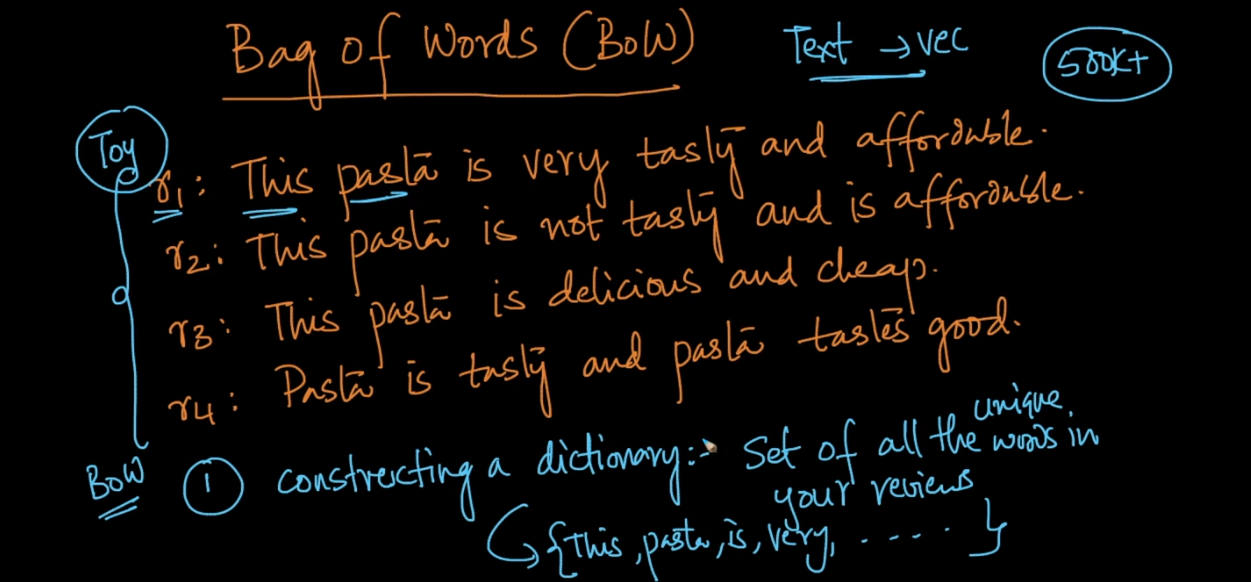 Bag of Words (BoW)
Text → vec
500K+
Toy
r1: This pasta is very tasty and affordable.
r2: This pasta is not tasty and is affordable.
r3: This pasta is delicious and cheap.
r4: Pasta is tasty and pasta tastes good.
BoW
1 constructing a dictionary:- Set of all the unique words in
your reviews
{This, pasta, is, very, ..... }